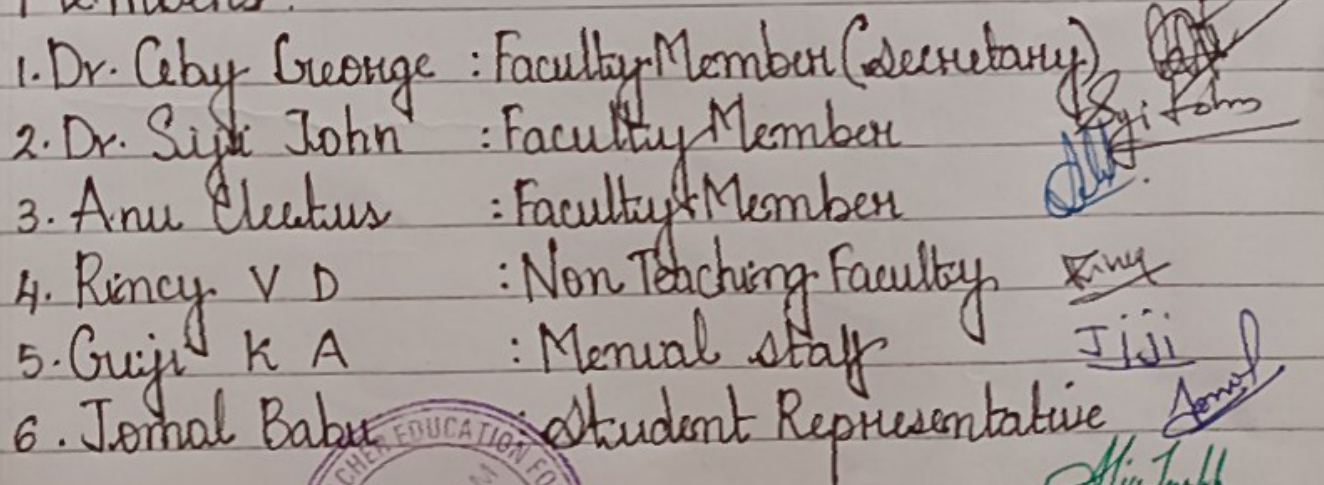 Members:
1. Dr. Ceby George : Faculty Member (Secretary)
2. Dr. Siji John : Faculty Member Syi John
3. Anu Cleetus : Faculty Member
4. Rincy V D : Non Teaching Faculty Rincy
5. Guiji K A : Menial staff Jiji
6. Jomal Babu : Student Representative Jomal
CHER EDUCATION FO